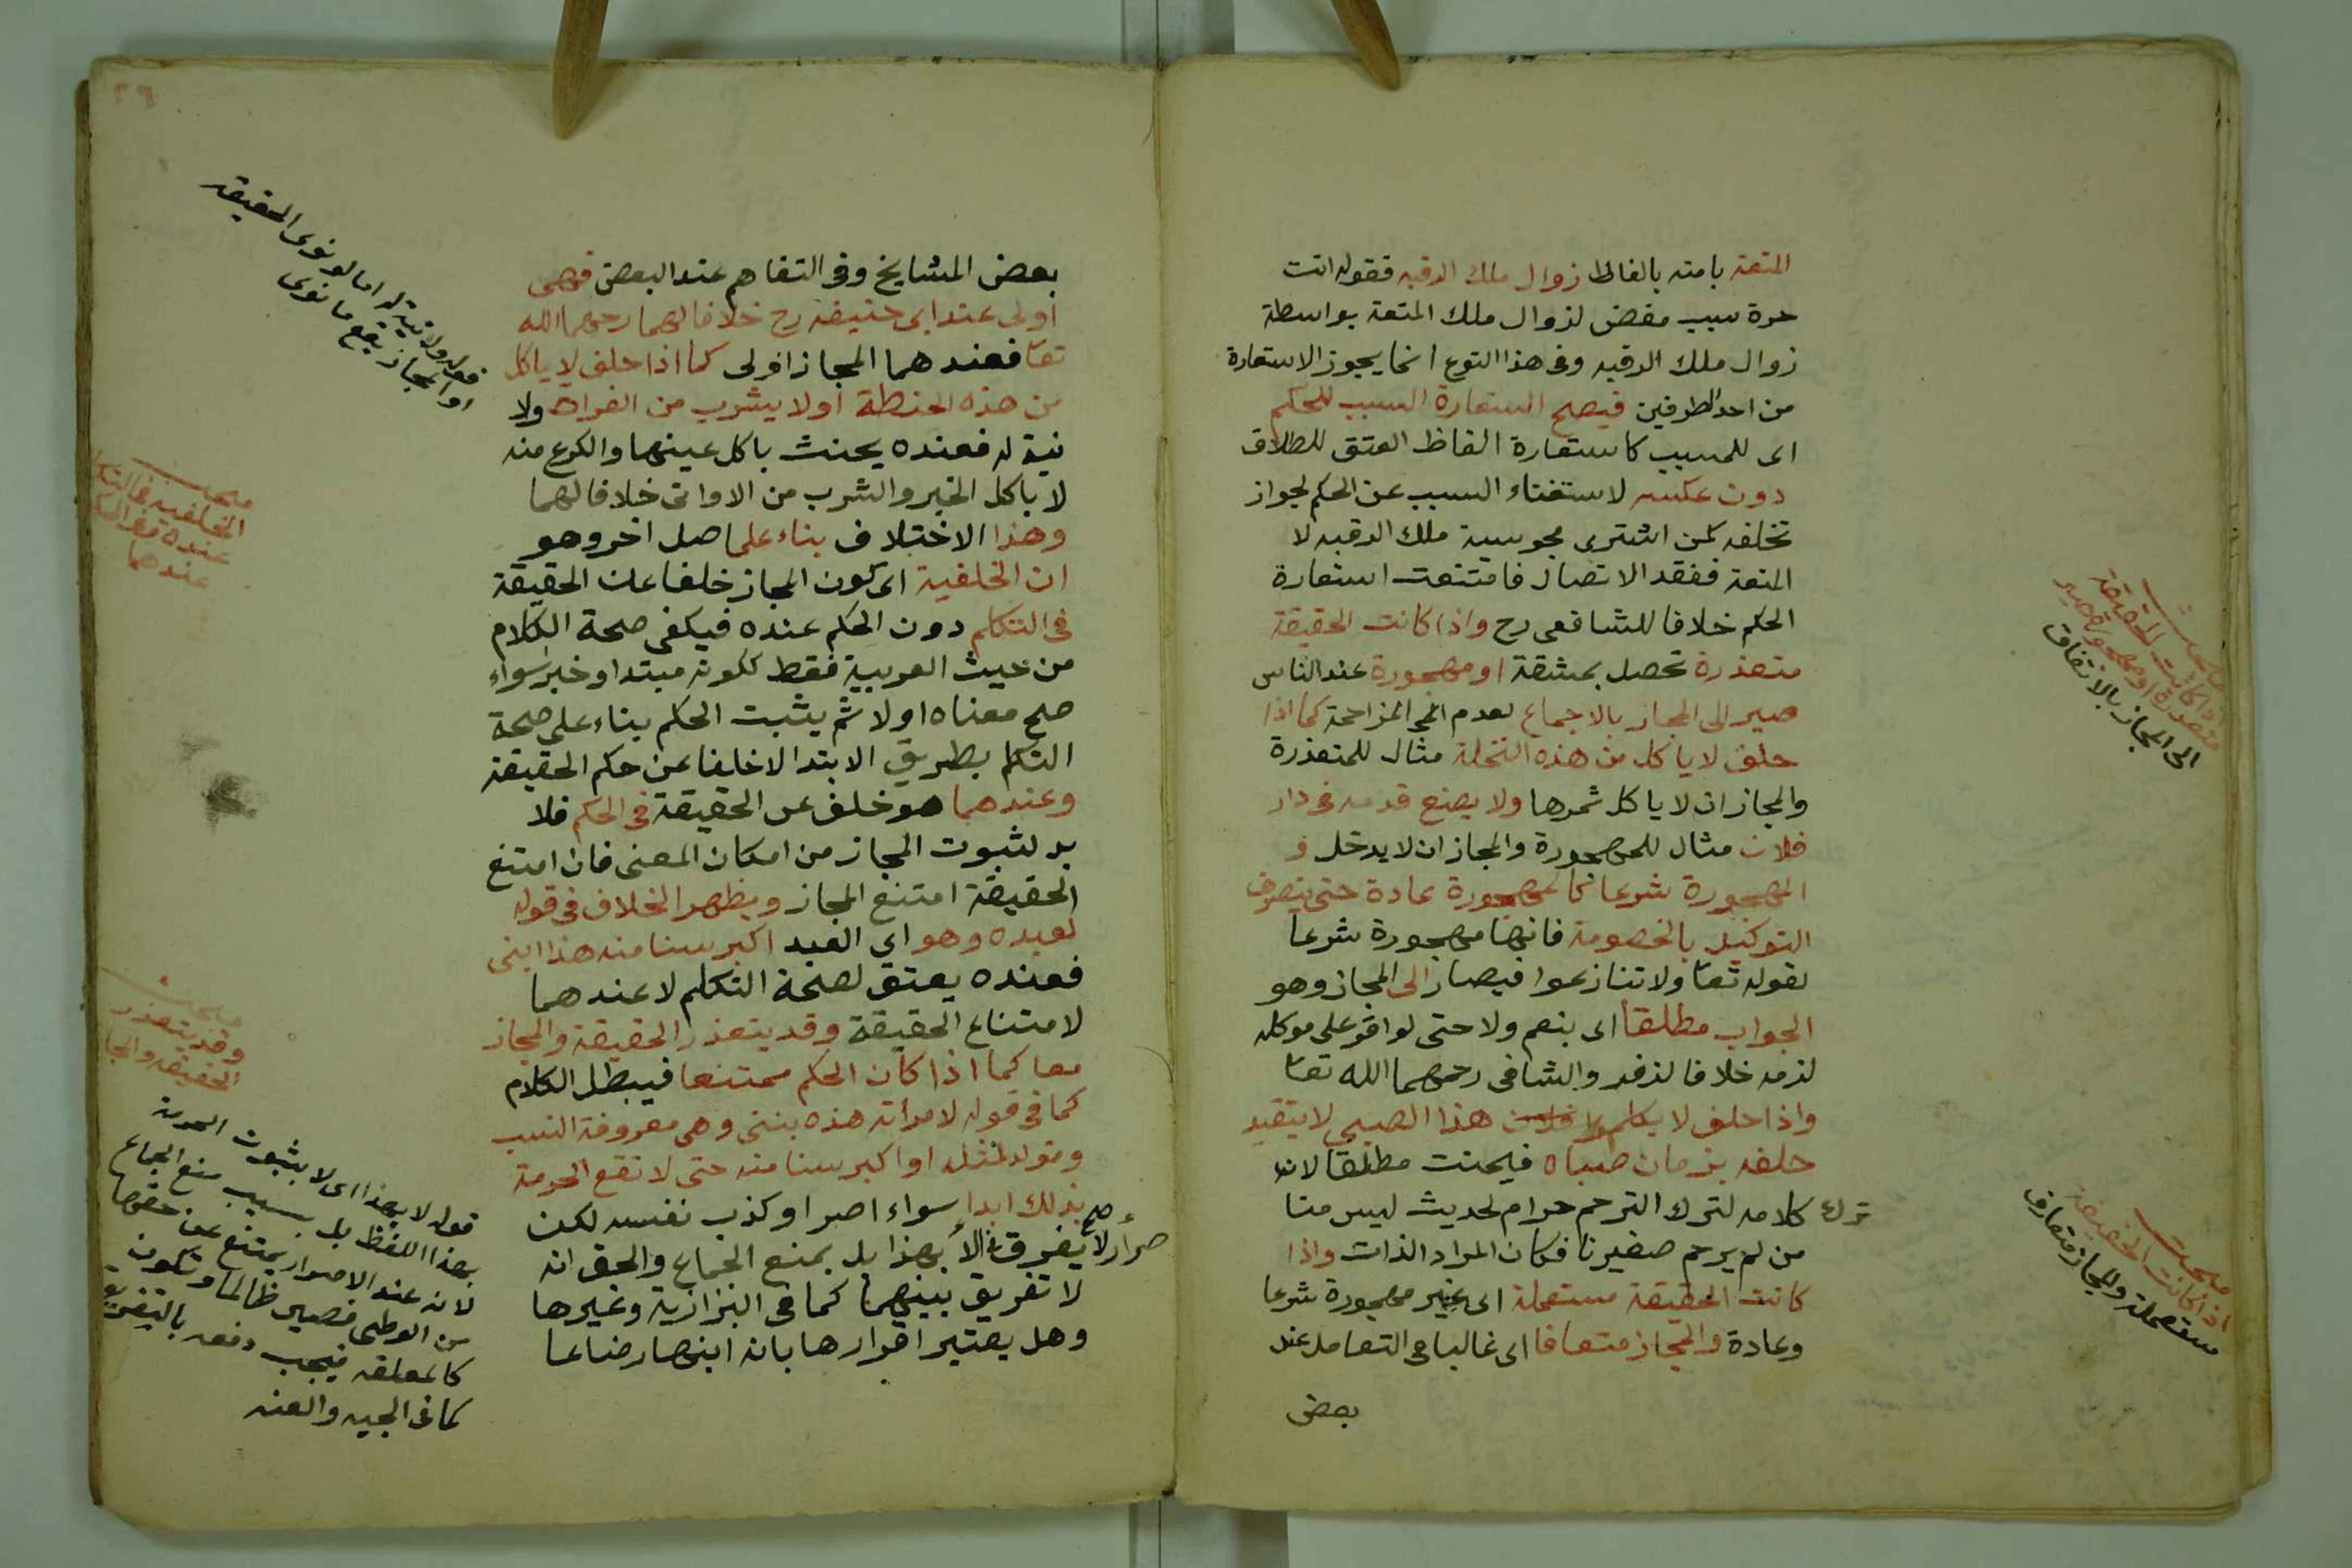 المتعة بامته بالفاظ زوال ملك الرقبه فقوله انت
حرة سبب مفض لزوال ملك المتعة بواسطة
زوال ملك الرقبه وفى هذا النوع انما يجوز الاستعارة
من احد الطرفين فيصح استعارة السبب للحكم
اى للمسبب كاستعارة الفاظ العتق للطلاق
دون عكسه لاستغناء السبب عن الحكم لجواز
تخلفه كمن اشترى مجوسية ملك الرقبه لا
المتعة ففقد الاتصال فامتنعت استعارة
الحكم خلافا للشافعى رح واذا كانت الحقيقة
متعذرة تحصل بمشقة او مهجورة عند الناس
صير الى المجاز بالاجماع لعدم المزاحمة كما اذا
حلف لا ياكل من هذه النخلة مثال للمتعذرة
والمجاز ان لا ياكل ثمرها ولا يضع قدمه فى دار
فلان مثال للمهجورة والمجاز ان لا يدخل و
المهجورة شرعا كالمهجورة عادة حتى ينصرف
التوكيل بالخصومة فانها مهجورة شرعا
لقوله تعا ولا تنازعوا فيصار الى المجاز وهو
الجواب مطلقا اى بنعم ولا حتى لو اقر على موكله
لزمه خلافا لزفر والشافى رحمهما الله تعا
واذا حلف لا يكلم هذا الصبى لا يتقيد
حلفه بزمان صباه فيحنث مطلقا لان
ترك كلامه لترك الترحم حرام لحديث ليس منا
من لم يرحم صغيرنا فكان المراد الذات واذا
كانت الحقيقة مستعملة اى غير مهجورة شرعا
وعادة والمجاز متعارفا اى غالبا فى التعامل عند
بعض
مبحث
اذا كانت الحقيقة
متعذرة او مهجورة صير
الى المجاز بالاتفاق
مبحث
اذا كانت الحقيقة
مستعملة والمجاز متعارف
٢٩
بعض المشايخ وفى التفاهم عند البعض فهى
اولى عند ابى حنيفة رح خلافا لهما رحمهما الله
تعا فعندهما المجاز اولى كما اذا حلف لا ياكل
من هذه الحنطة او لا يشرب من الفرات ولا
نية له فعنده يحنث باكل عينها والكرع منه
لا باكل الخبز والشرب من الاوانى خلافا لهما
وهذا الاختلاف بناء على اصل اخر وهو
ان الخلفية اى كون المجاز خلفا عن الحقيقة
فى التكلم دون الحكم عنده فيكفى صحة الكلام
من حيث العربية فقط ككونه مبتدا وخبر سواء
صح معناه اولا ثم يثبت الحكم بناء على صحة
التكلم بطريق الابتدا لا خلفا عن حكم الحقيقة
وعندهما هو خلف عن الحقيقة فى الحكم فلا
بد لثبوت المجاز من امكان المعنى فان امتنع
الحقيقة امتنع المجاز ويظهر الخلاف فى قوله
لعبده وهو اى العبد اكبر سنا منه هذا ابنى
فعنده يعتق لصحة التكلم لا عندهما
لامتناع الحقيقة وقد يتعذر الحقيقة والمجاز
معا كما اذا كان الحكم ممتنعا فيبطل الكلام
كما فى قوله لامرأته هذه بنتى وهى معروفة النسب
وتولد لمثله او اكبر سنا منه حتى لا تقع الحرمة
بذلك ابدا سواء اصر او كذب نفسه لكن
لا يفرق بهذا بل بمنع الجماع والحق انه
لا تفريق بينهما كما فى البزازية وغيرها
وهل يعتبر اقرارها بانه ابنها رضاعا
قوله ولا نية له اما لو نوى الحقيقة
او المجاز يقع ما نوى
مبحث
الخلفية فى التكلم
عنده وفى الحكم
عندهما
مبحث
وقد يتعذر
الحقيقة والمجاز
قوله لا بهذا اى لا بثبوت الحرمة
بهذا اللفظ بل بسبب منع الجماع
لانه عند الاصرار يمتنع عن حقها
من الوطى فصير ظالما وتكون
كالمعلقه فيجب دفعه بالتفريق
كما فى الجب والعنه